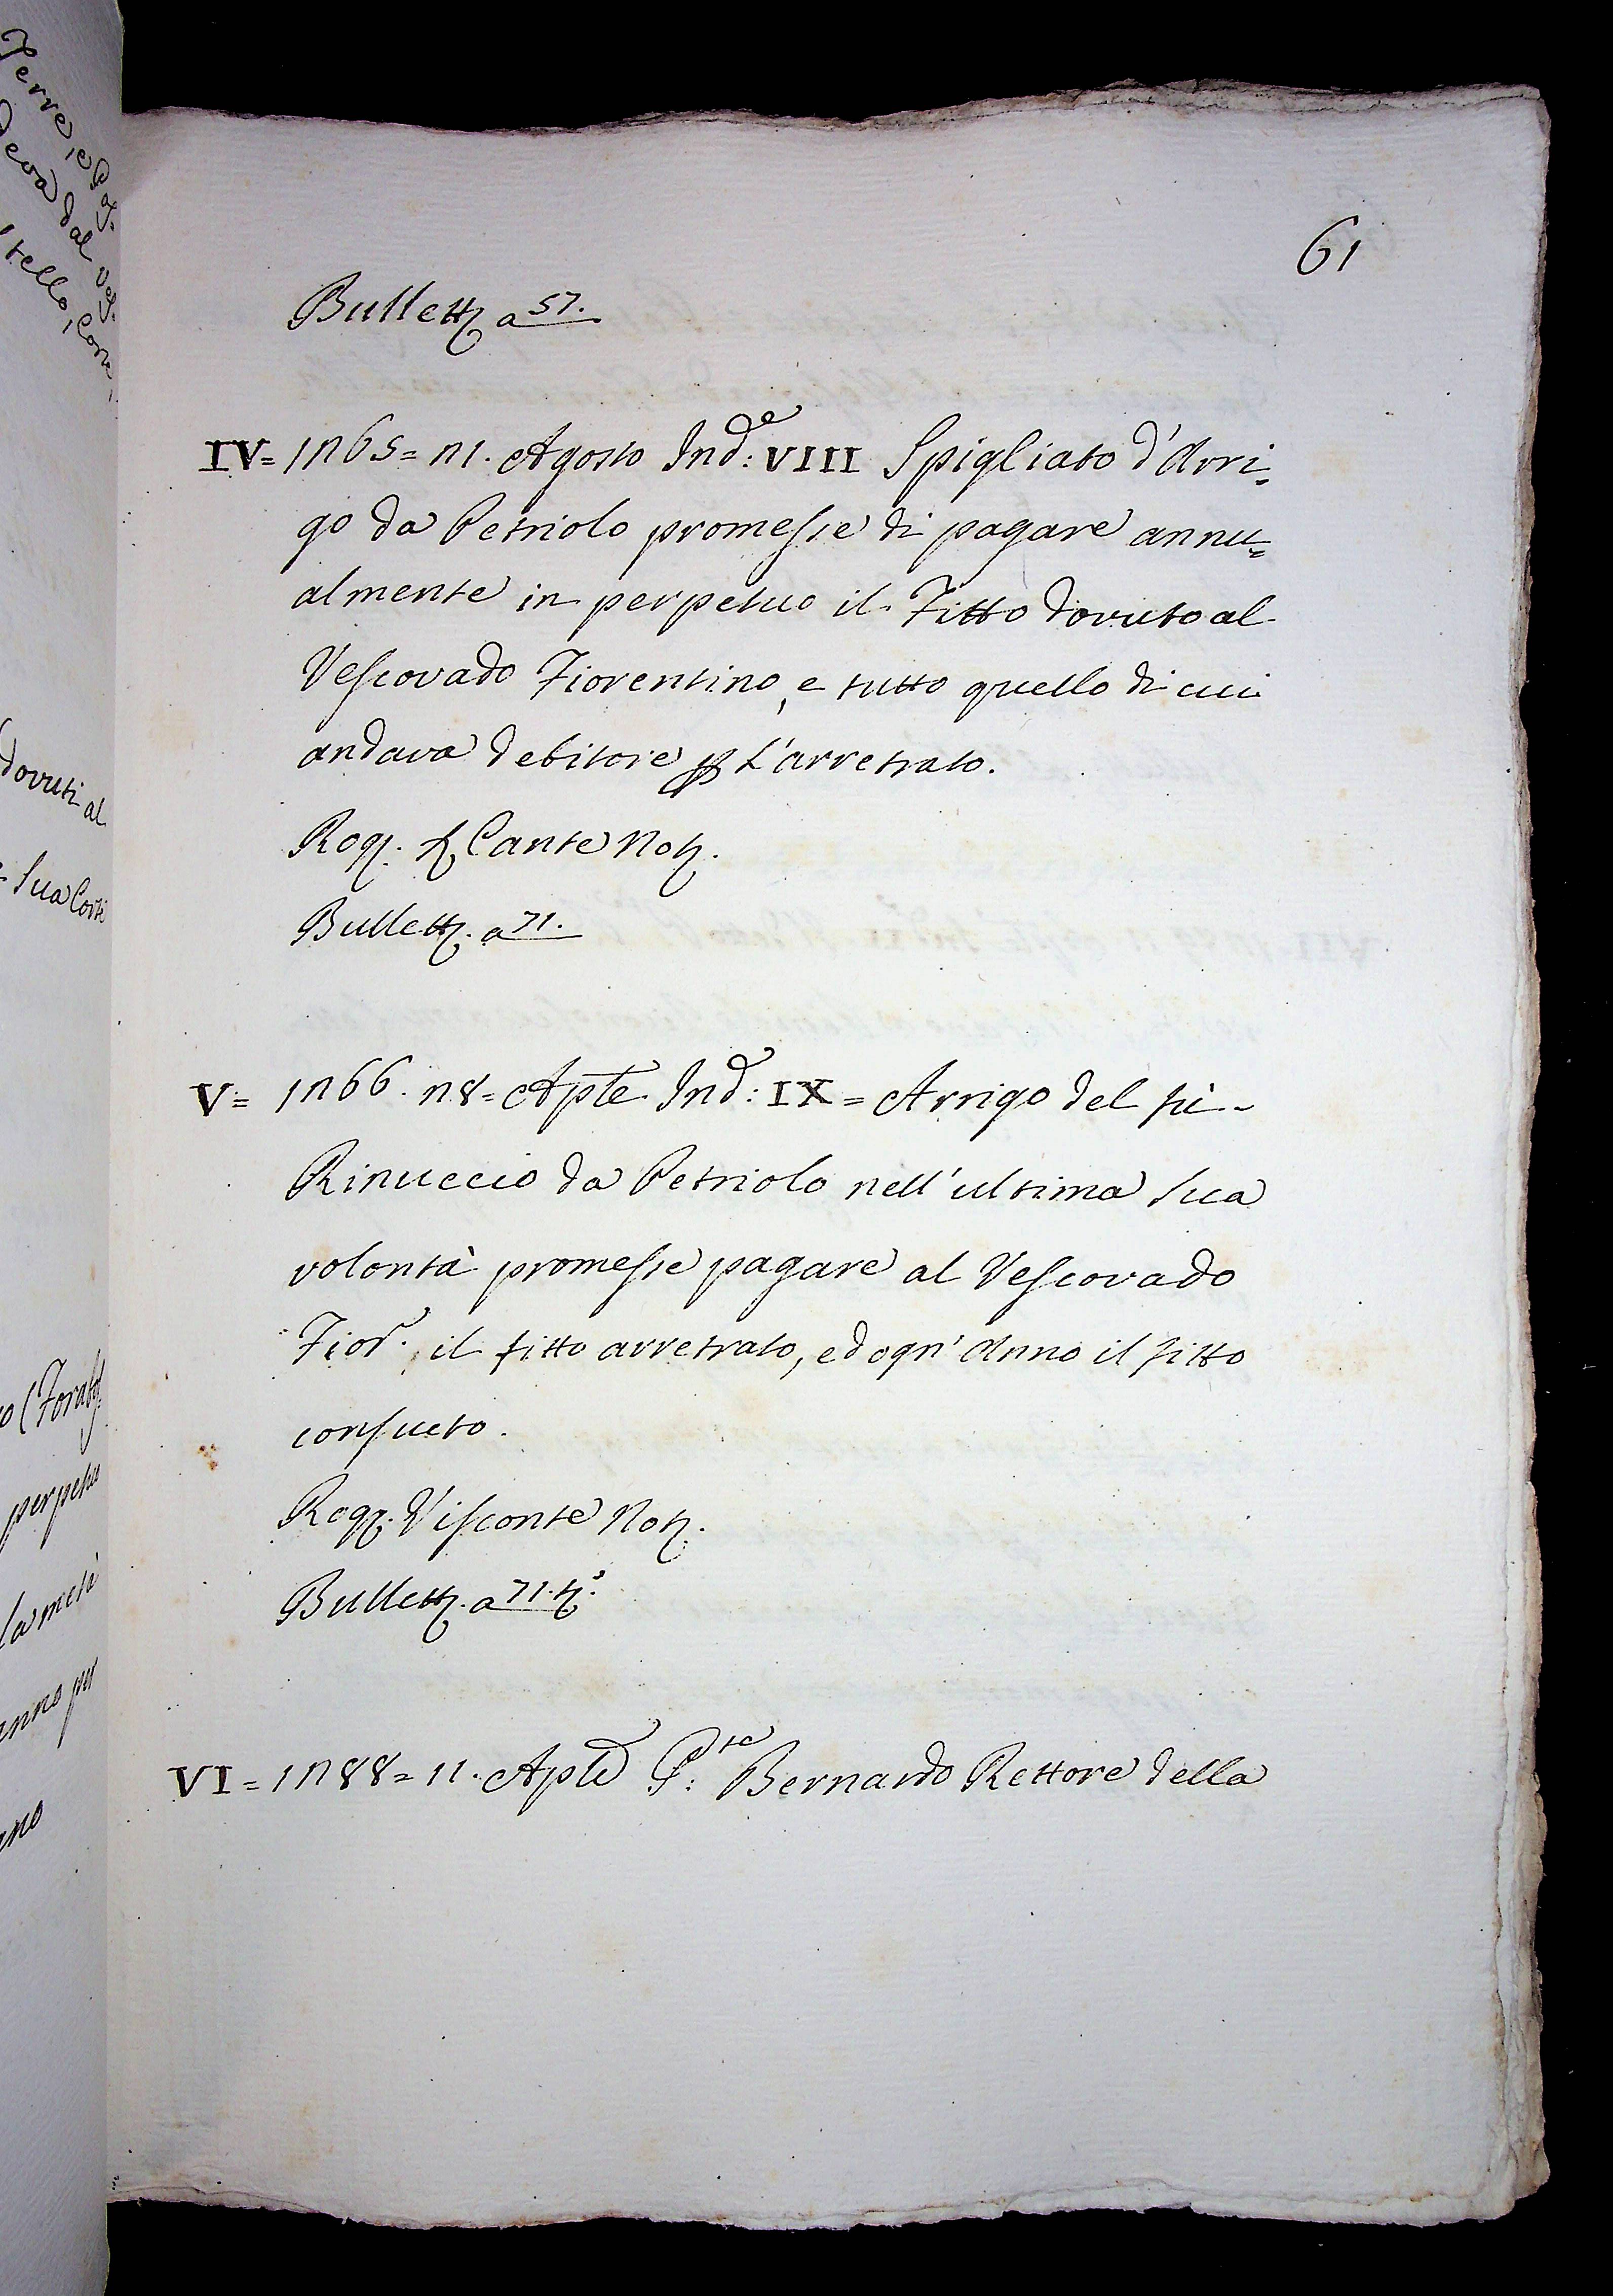 Terre, e
deva dal Ves.
stello, 
dovuti al
= Sua Corte
perpetuo
la metà
anno per
61
Bullett. a 57.
IV = 1265 = 21. Agosto Ind.e: VIII Spigliato d'Arri=
go da Petriolo promesse di pagare annu=
almente in perpetuo il Fitto dovuto al
Vescovado Fiorentino, e tutto quello di cui
andava debitore p L'arretrato.
Rog. Ser Cante Not.
Bullett. a 71.
V = 1266. 28 = Aple Ind: IX = Arrigo del fù
Rinuccio da Petriolo nell'ultima sua
volontà promesse pagare al Vescovado
Fior. il fitto arretrato, ed ogn'Anno il fitto
consueto.
Rog. Visconte Not.
Bullett. a 71. t.
VI = 1288 = 11. Aple P:te Bernardo Rettore della